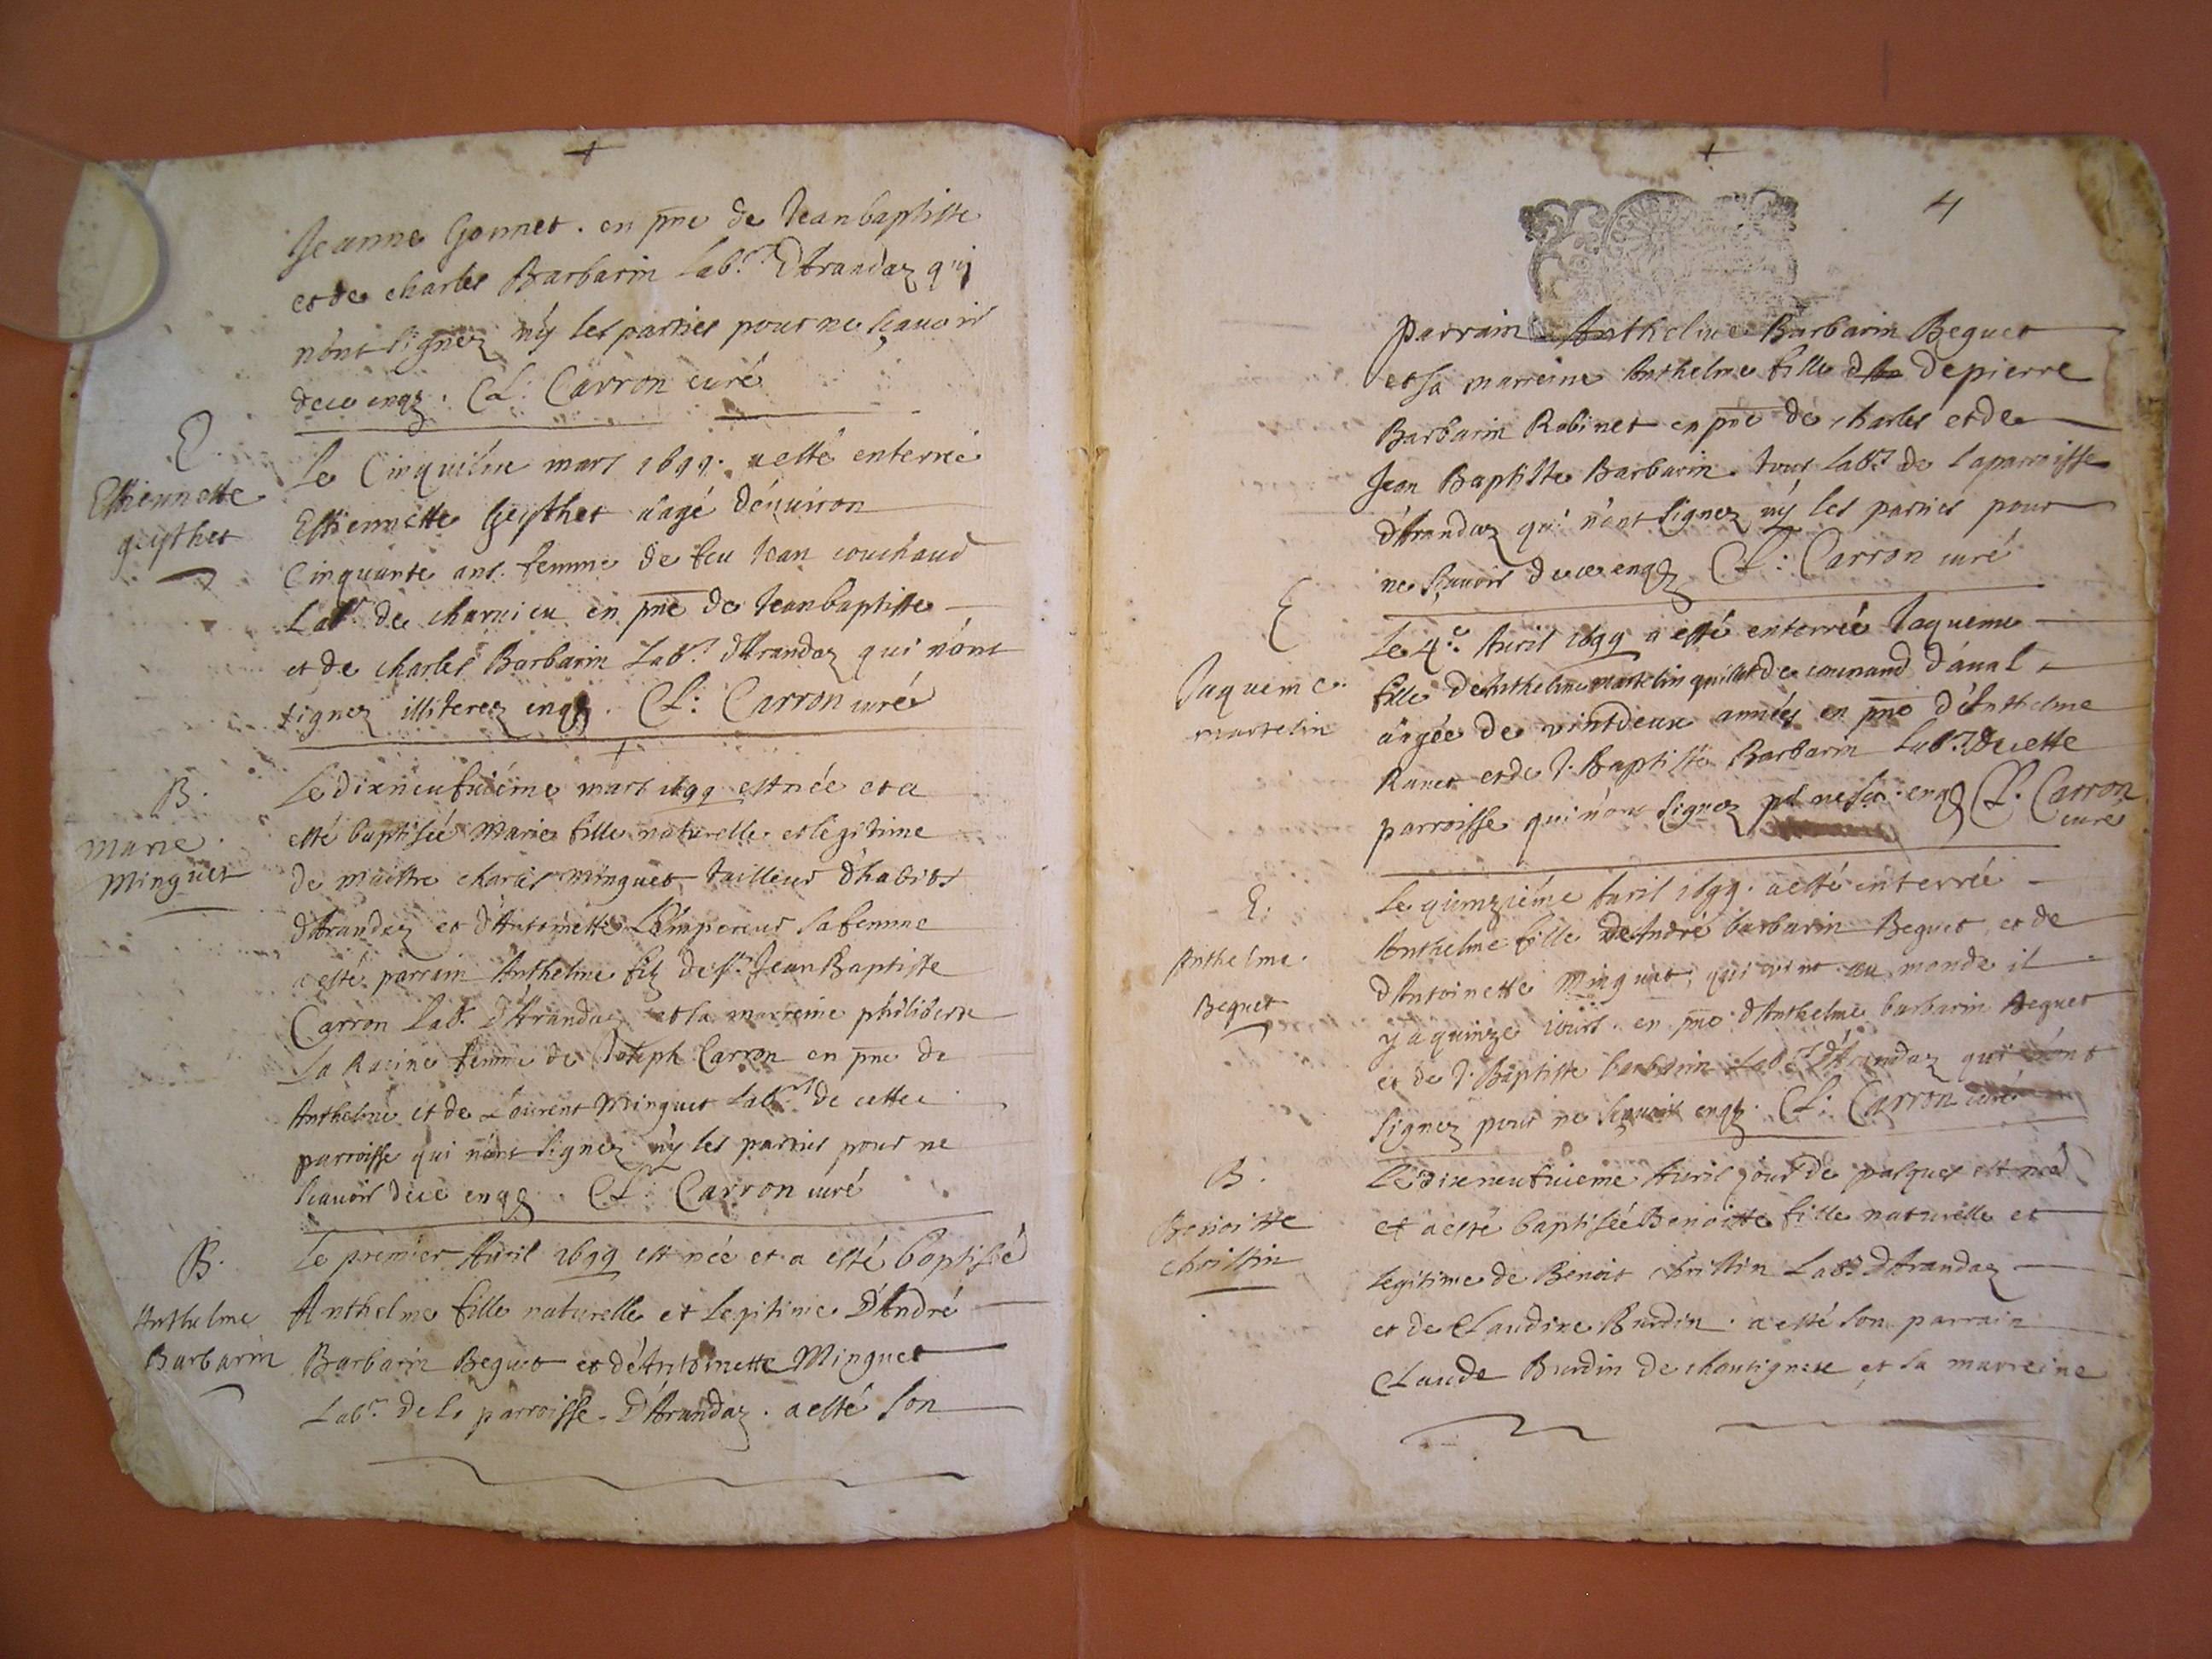 Jeanne Gonnet. en pñe de Jeanbaptiste
et de charles Barbarin Lab.rs D'Arandaz qui
n'ont signez n'y les parties pour ne sçavoir
de ce enqz. Cl: Carron curé
E.
Estiennette
geysthet
Le Cinquième mars 1699. a esté enterrée
Estiennette Geysthet aagé d'enuiron
Cinquante ans. femme de feu Jean couchaud
Labr. de charuieu en pñe de Jeanbaptiste
et de charles Barbarin Lab.rs d'Arandaz qui n'ont
signez illiterez enqz. Cl: Carron curé
B.
marie
Minguet
Le dixneufuiéme mars 1699 est née et a
esté baptisée Marie fille naturelle et legitime
de maistre charles minguet tailleur d'habits
d'Arandaz et d'Antoinette L'Empereur sa femme
a esté parrain Anthelme filz de sr. Jean Baptiste
Carron Lab. D'Arandaz et sa marreine philiberte
La Racine femme de Joseph Carron en pñe de
Anthelme et de Lourent Minguet Lab.rs de cette
parroisse qui n'ont signez n'y les parties pour ne
sçauoir de ce enqz. Cl: Carron curé
B.
Anthelme
Barbarin
Le premier Auril 1699 est née et a esté baptisée
Anthelme fille naturelle et legitime D'André
Barbarin Beguet et d'Antoinette Minguet
Labr. de la parroisse D'Arandaz. a esté son
4
parrain Anthelme Barbarin Beguet
et sa marreine Anthelme fille de pierre
Barbarin Robinet en pñe de charles et de
Jean Baptiste Barbarin tous Labrs de la parroisse
d'Arandaz qui n'ont signez n'y les parties pour
ne sçauoir de ce enqz Cl: Carron curé
E
Jaqueme
martelin
Le 4.e Auril 1699 a esté enterrée Jaqueme
fille De Anthelme martelin de counand d'aual
aagée de vintdeux années en pñe d'Anthelme
Ranet et de J. Baptiste Barbarin Labrs de cette
parroisse qui n'ont signez pr ne sça. enqz Cl. Carron
curé
E.
Anthelme
Beguet
Le quinziéme Auril 1699. a esté enterrée
Anthelme fille de André barbarin Beguet et de
d'Antoinette Minguet, qui vint au monde il
y a quinze iours. en pñe d'Anthelme barbarin Beguet
et de J. Baptiste barbarin Labrs d'Arandaz qui n'ont
signez pour ne sçauoir enqz. Cl: Carron curé
B.
Benoitte
christin
Le dixneufuieme Auril jour de pasques est née
et a esté baptisée Benoitte fille naturelle et
legitime de Benoit christin Labr D'Arandaz
et de Claudine Burdin. a esté son parrain
Claude Burdin de et sa marreine